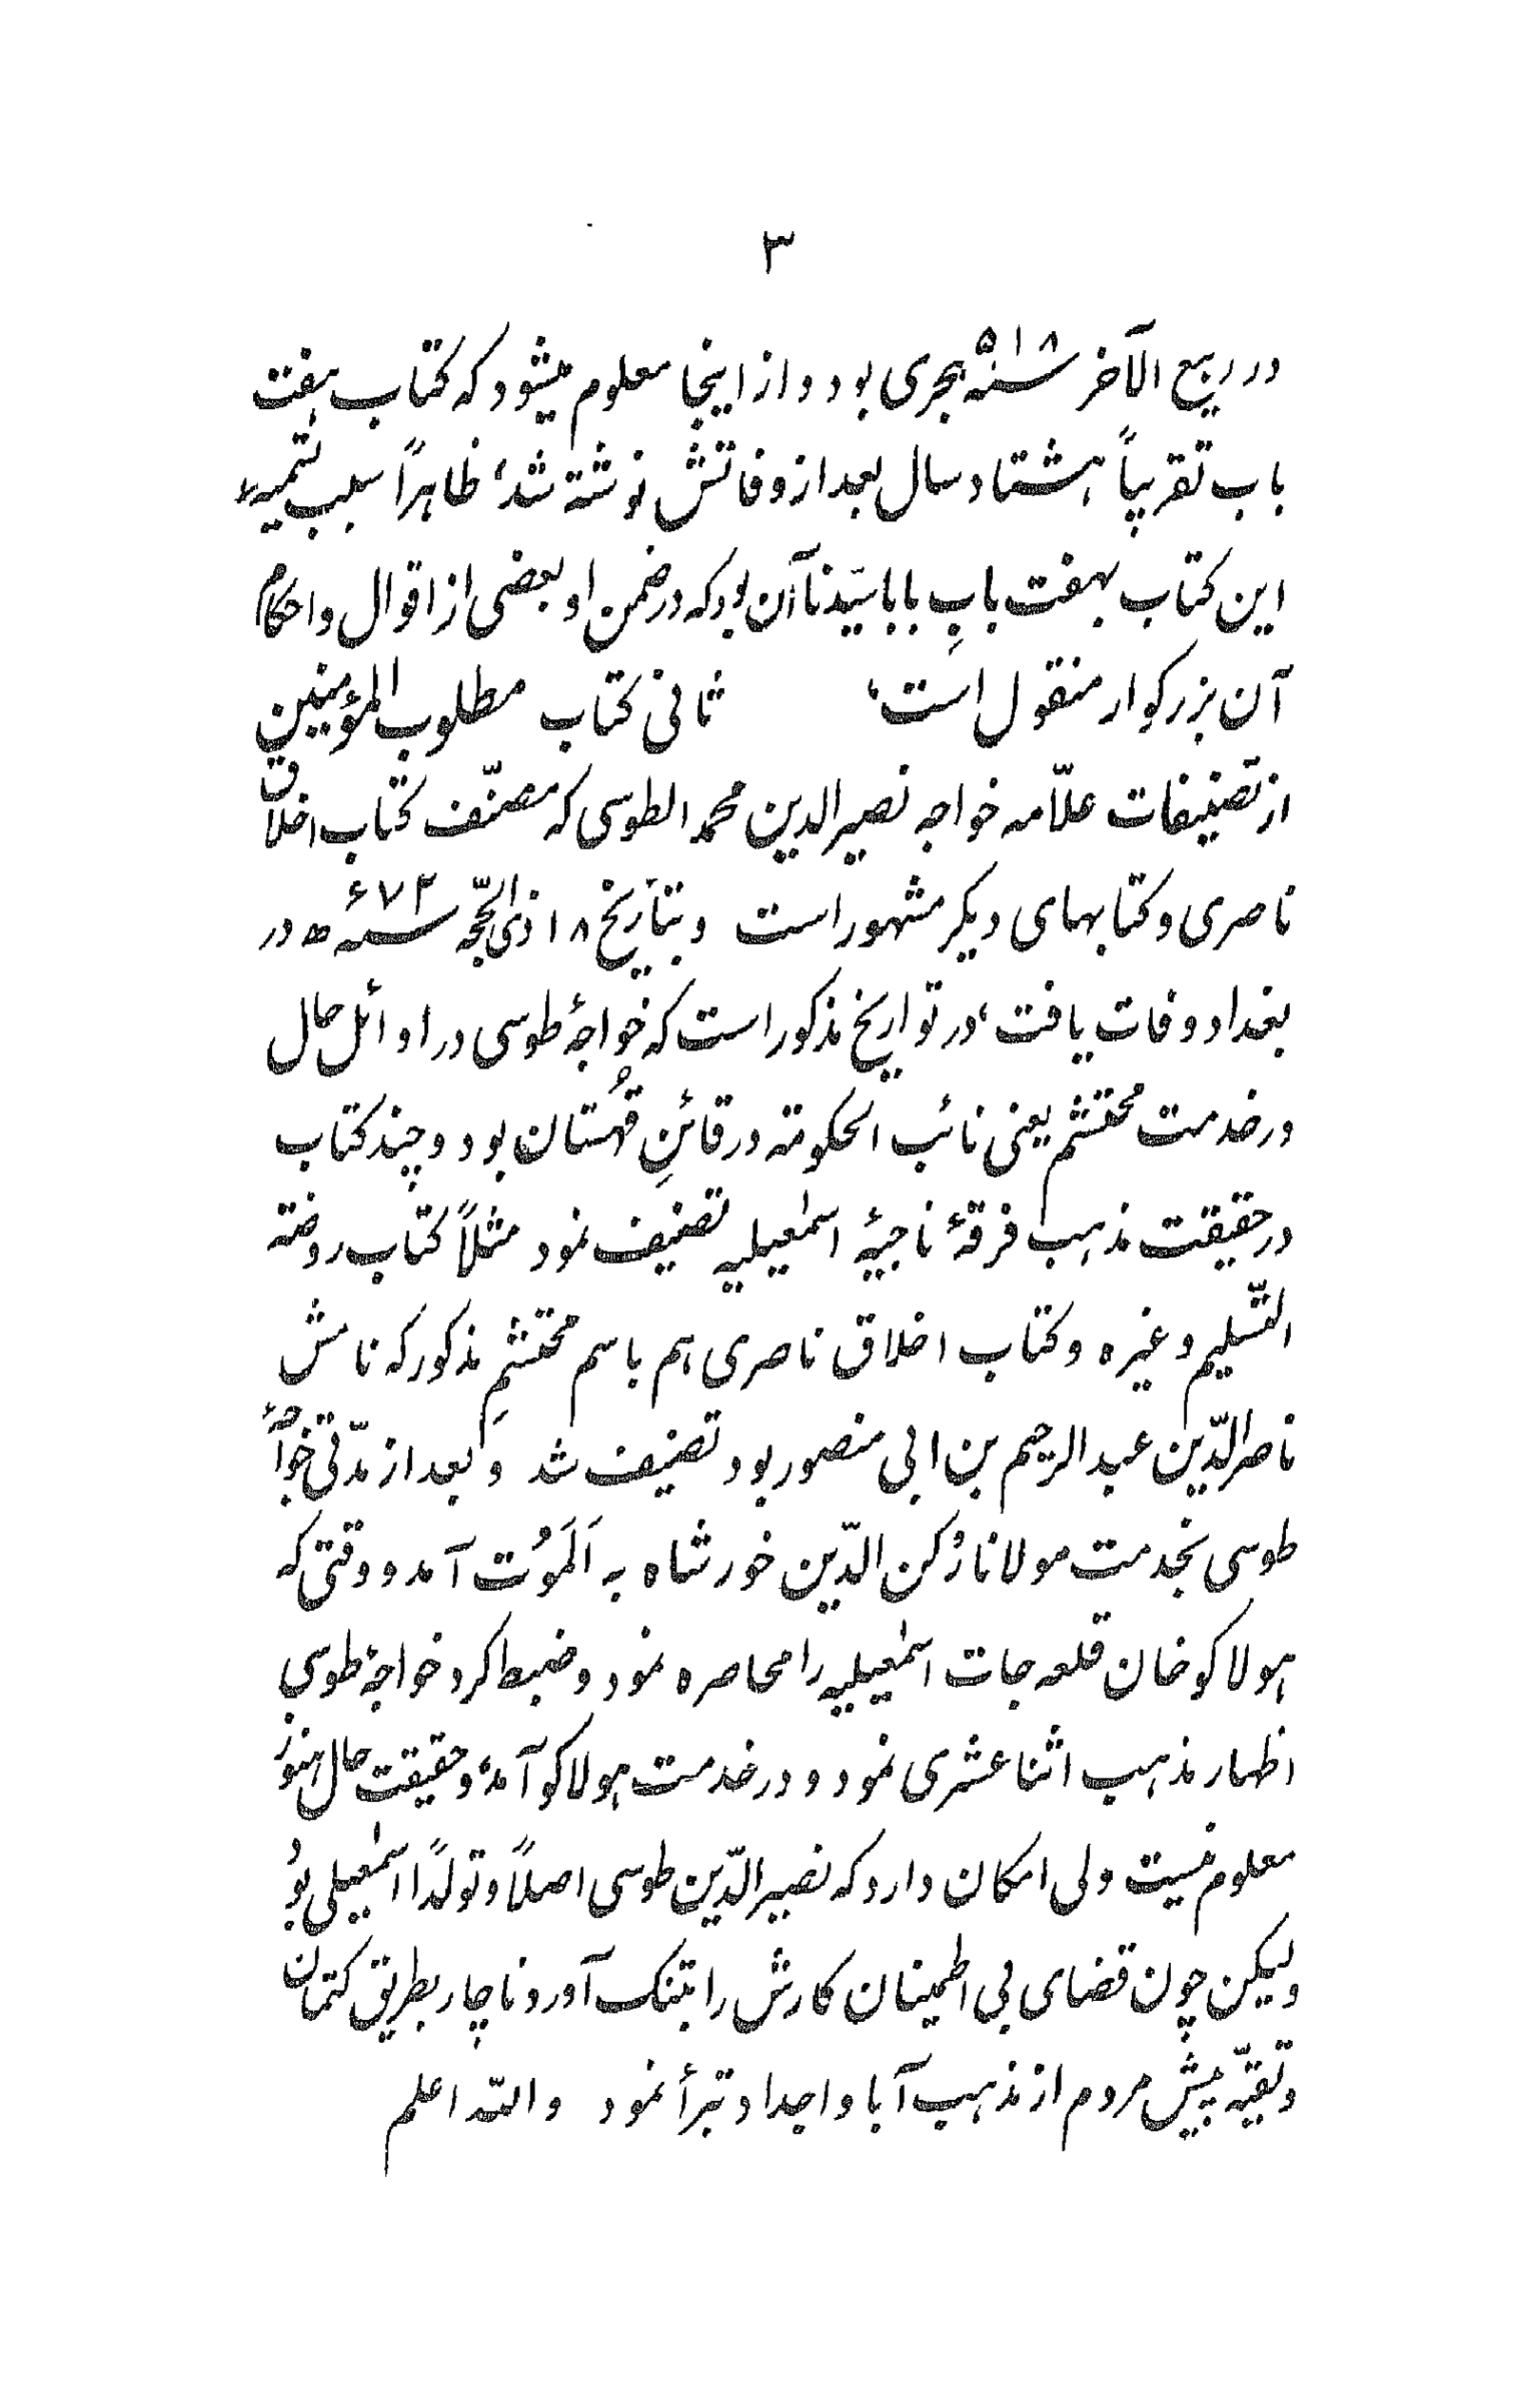 ۳
در ربیع الآخر سنه ۵۱۸ هجری بود و از اینجا معلوم میشود که کتاب هفت
باب تقریباً هشتاد سال بعد از وفاتش نوشته شد، ظاهراً سبب تسمیهٔ
این کتاب بهفت بابِ بابا سیّدنا آن بود که در ضمن او بعضی از اقوال و احکام
آن بزرکوار منقول است، ثانی کتاب مطلوب المؤمنین
از تصنیفات علاّمه خواجه نصیر الدین محمد الطوسی که مصنّف کتاب اخلاق
ناصری و کتابهای دیکر مشهور است و بتأریخ ۱۸ ذی الحجّه سنه ۶۷۲ ه در
بغداد وفات یافت، در تواریخ مذکور است که خواجهٔ طوسی در اوائل حال
در خدمت محتشم یعنی نائب الحکومته در قائنِ قُهُستان بود و چند کتاب
در حقیقت مذهب فرقهٔ ناجیهٔ اسمٰعیلیه تصنیف نمود مثلاً کتاب روضته
التّسلیم و غیره و کتاب اخلاق ناصری هم باسم محتشمِ مذکور که نامش
ناصر الدّین عبد الرحیم بن ابی منصور بود تصنیف شد و بعد از مدّتی خواجهٔ
طوسی بخدمت مولانا رُکن الدّین خورشاه به اَلَمَوُت آمد و وقتی که
هولاکو خان قلعه جات اسمٰعیلیه را محاصره نمود و ضبط کرد خواجهٔ طوسی
اظهار مذهب اثنا عشری نمود و در خدمت هولاکو آمد، و حقیقت حال هنوز
معلوم نیست ولی امکان دارد که نصیر الدّین طوسی اصلاً و تولّداً اسمٰعیلی بُود
ولیکن چون قضای بی اطمینان کارش را بتنک آورد ناچار بطریق کتمان
و تقیّه پیش مردم از مذهب آبا و اجداد تبرأ نمود والله اعلم